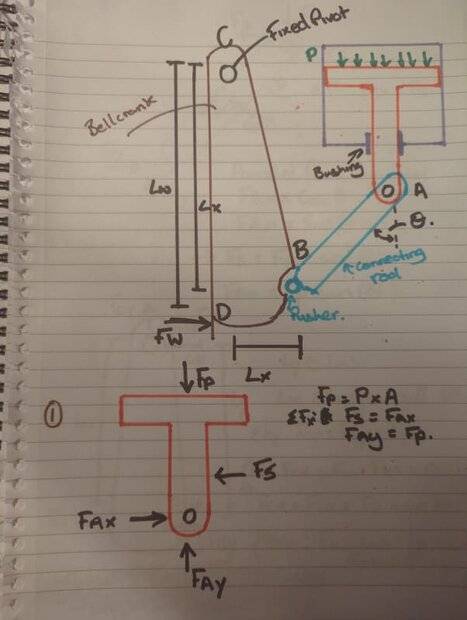 C
Fixed Pivot
P
Bellcrank
Bushing
A
θ.
Lw
Lx
B
connecting
rod
Pusher.
D
Fw
Lx
①
Fp
Fp = P x A
ΣFx Fs = FAx
FAy = Fp.
Fs
FAx
FAy